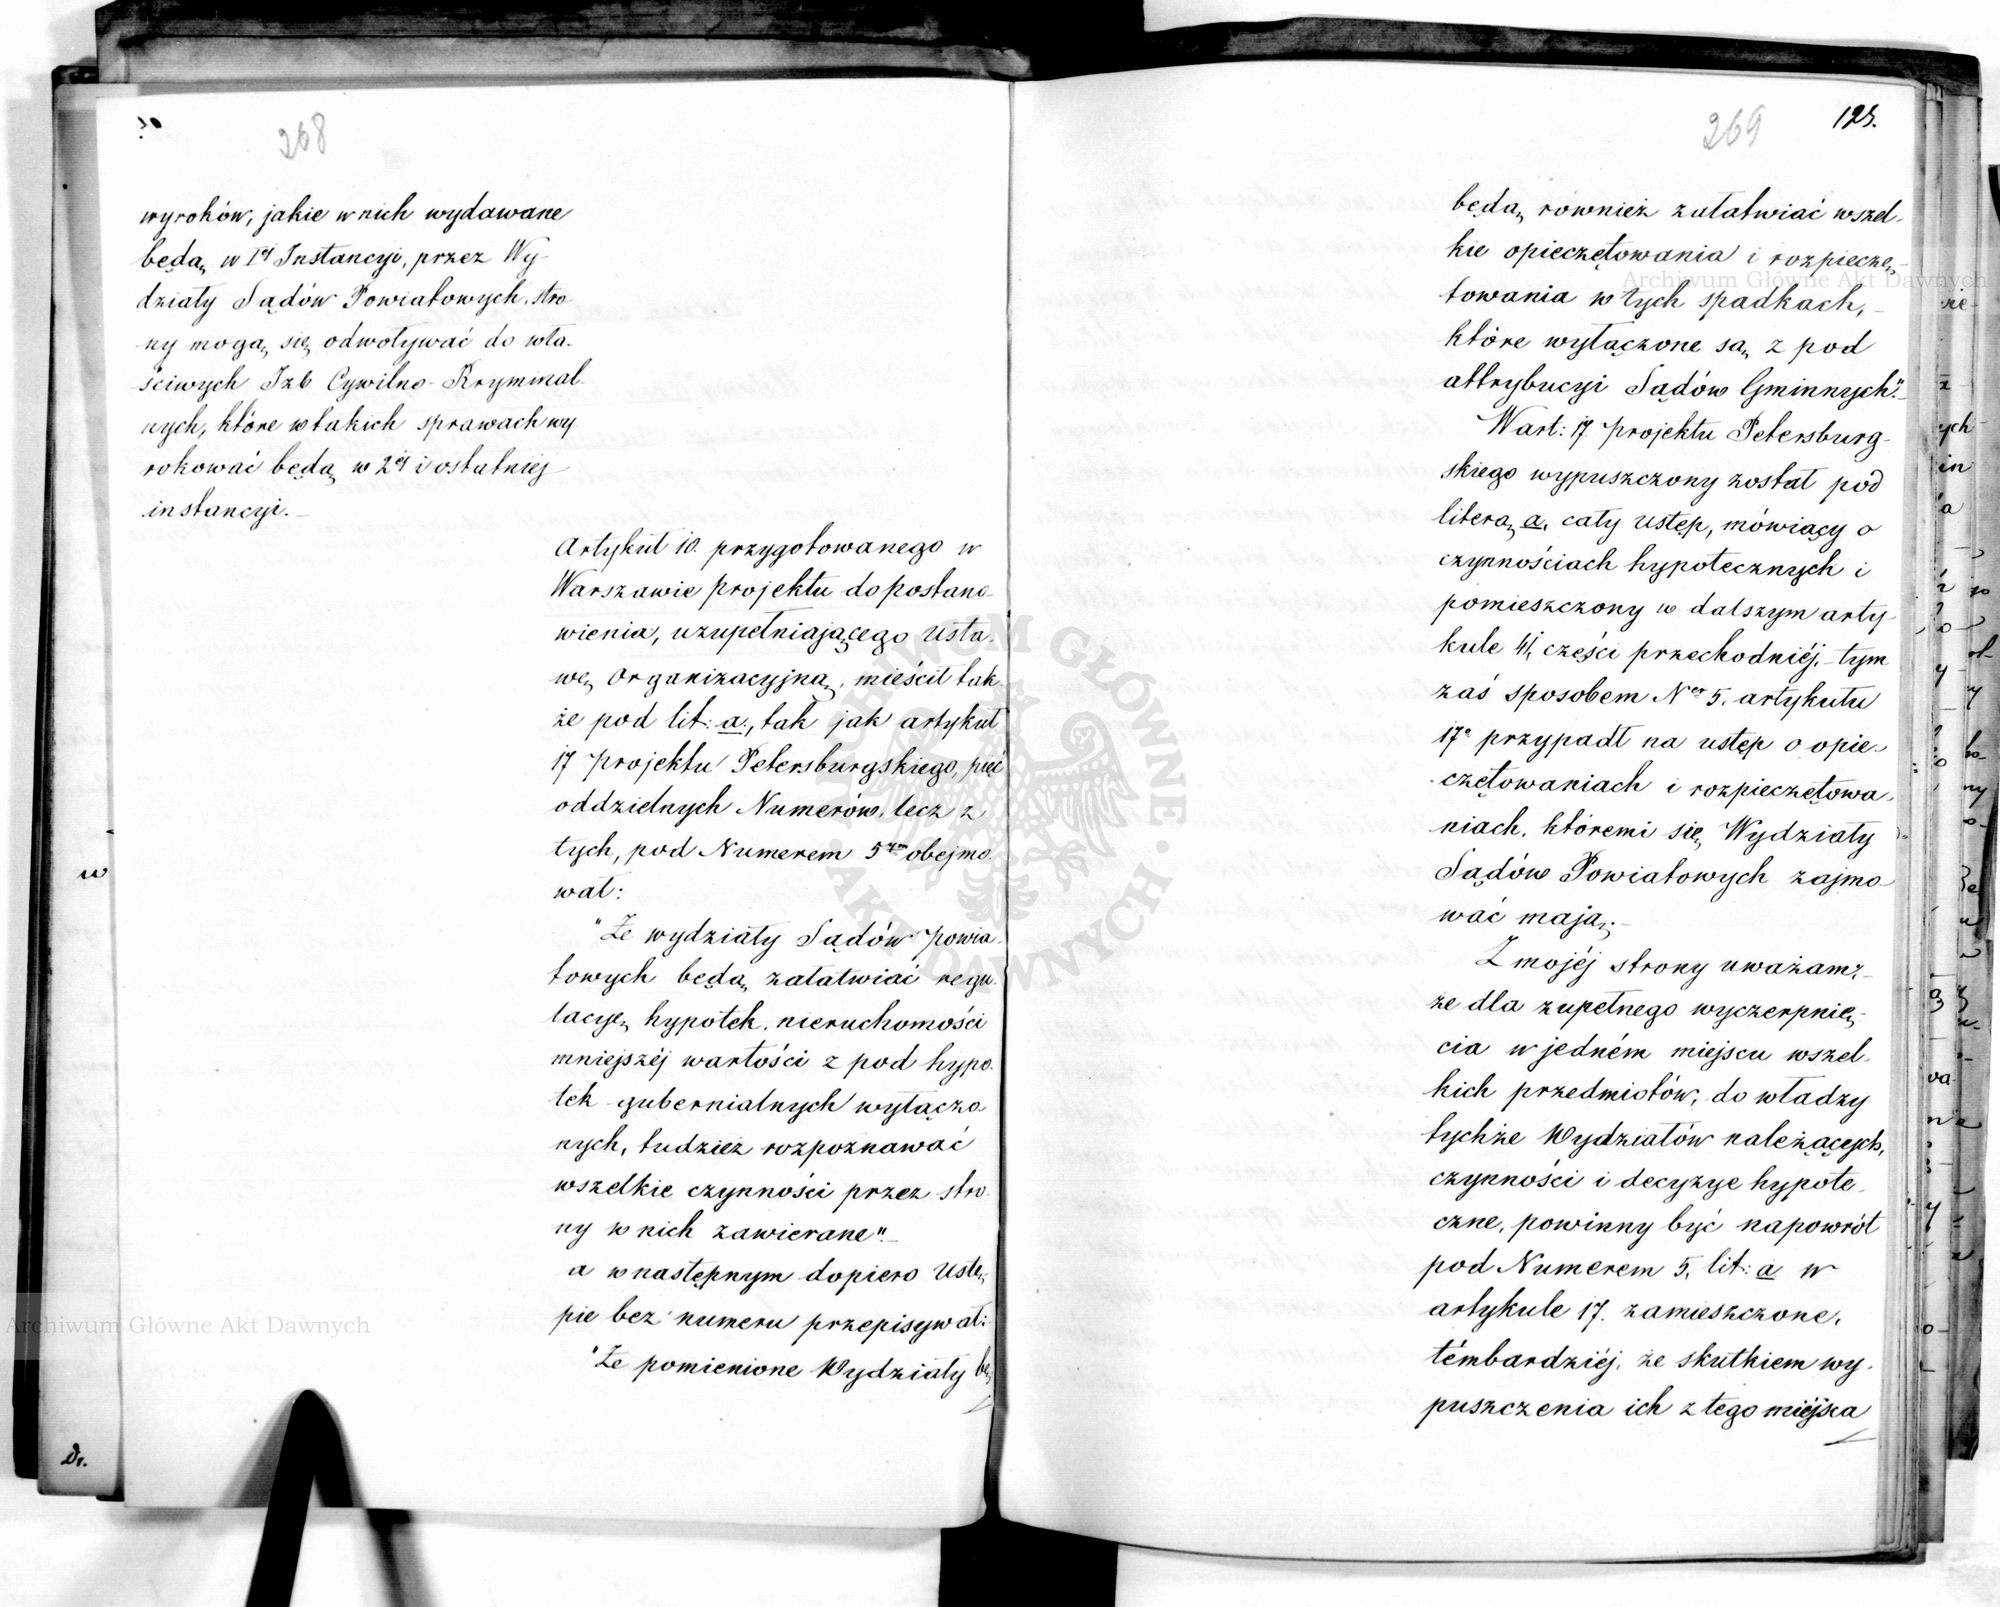 268
wyroków, jakie w nich wydawane
będą, w Iej Instancyi, przez Wy-
działy Sądów Powiatowych, stro-
ny mogą się odwoływać do wła-
ściwych Izb Cywilno-Kryminal-
nych, które w takich sprawach wy-
rokować będą w 2ej i ostatniej
instancyi.
Artykuł 10. przygotowanego w
Warszawie projektu do postano-
wienia, uzupełniającego Usta-
wę Organizacyjną, mieścił tak-
że pod lit: a., tak jak artykuł
17 projektu Petersburgskiego, pięć
oddzielnych Numerów, lecz z
tych, pod Numerem 5ym obejmo-
wał:
"Że wydziały Sądów Powia-
towych będą załatwiać regu-
lacyę hypotek, nieruchomości
mniejszéj wartości z pod hypo-
tek gubernialnych wyłączo-
nych, tudzież rozpoznawać
wszelkie czynności przez stro-
ny w nich zawierane".
a w następnym dopiero Ustę-
pie bez numeru przepisywał:
"Że pomienione Wydziały bę-
w
Dr.
269
125.
będą również załatwiać wszel-
kie opieczętowania i rozpieczę-
towania w tych spadkach,
które wyłączone są z pod
attrybucyi Sądów Gminnych".
W art: 17 projektu Petersburg-
skiego wypuszczony został pod
literą a. cały ustęp, mówiący o
czynnościach hypotecznych i
pomieszczony w dalszym arty-
kule 41, części przechodniéj, tym
zaś sposobem Ner 5. artykułu
17o przypadł na ustęp o opie-
czętowaniach i rozpieczętowa-
niach, któremi się Wydziały
Sądów Powiatowych zajmo-
wać mają.
Z mojéj strony uważam,
że dla zupełnego wyczerpnię-
cia w jedném miejscu wszel-
kich przedmiotów, do władzy
tychże Wydziałów należących,
czynności i decyzye hypote-
czne, powinny być napowrót
pod Numerem 5. lit: a w
artykule 17. zamieszczone,
témbardziéj, że skutkiem wy-
puszczenia ich z tego miejsca
Archiwum Główne Akt Dawnych
Archiwum Główne Akt Dawnych
ARCHIWUM GŁÓWNE · AKT DAWNYCH ·